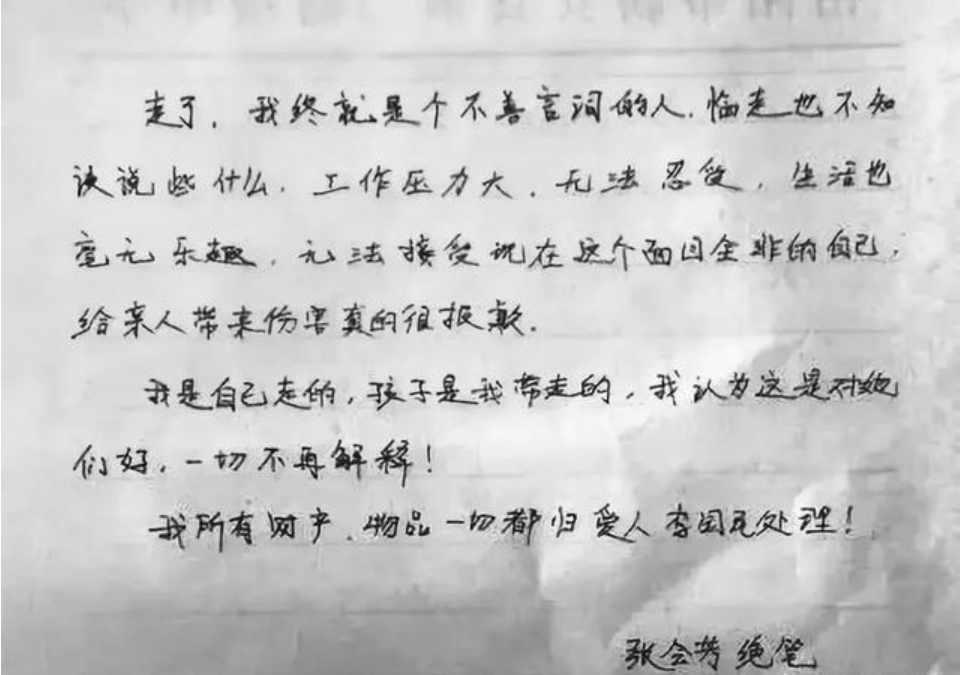 走了，我终就是个不善言词的人，临走也不知
该说些什么．工作压力大，无法忍受，生活也
毫无乐趣，无法接受现在这个面目全非的自己，
给亲人带来伤害真的很报歉．
我是自己走的，孩子是我带走的，我认为这是对她
们好，一切不再解释！
我所有财产、物品一切都归爱人李国无处理！
张会芳绝笔